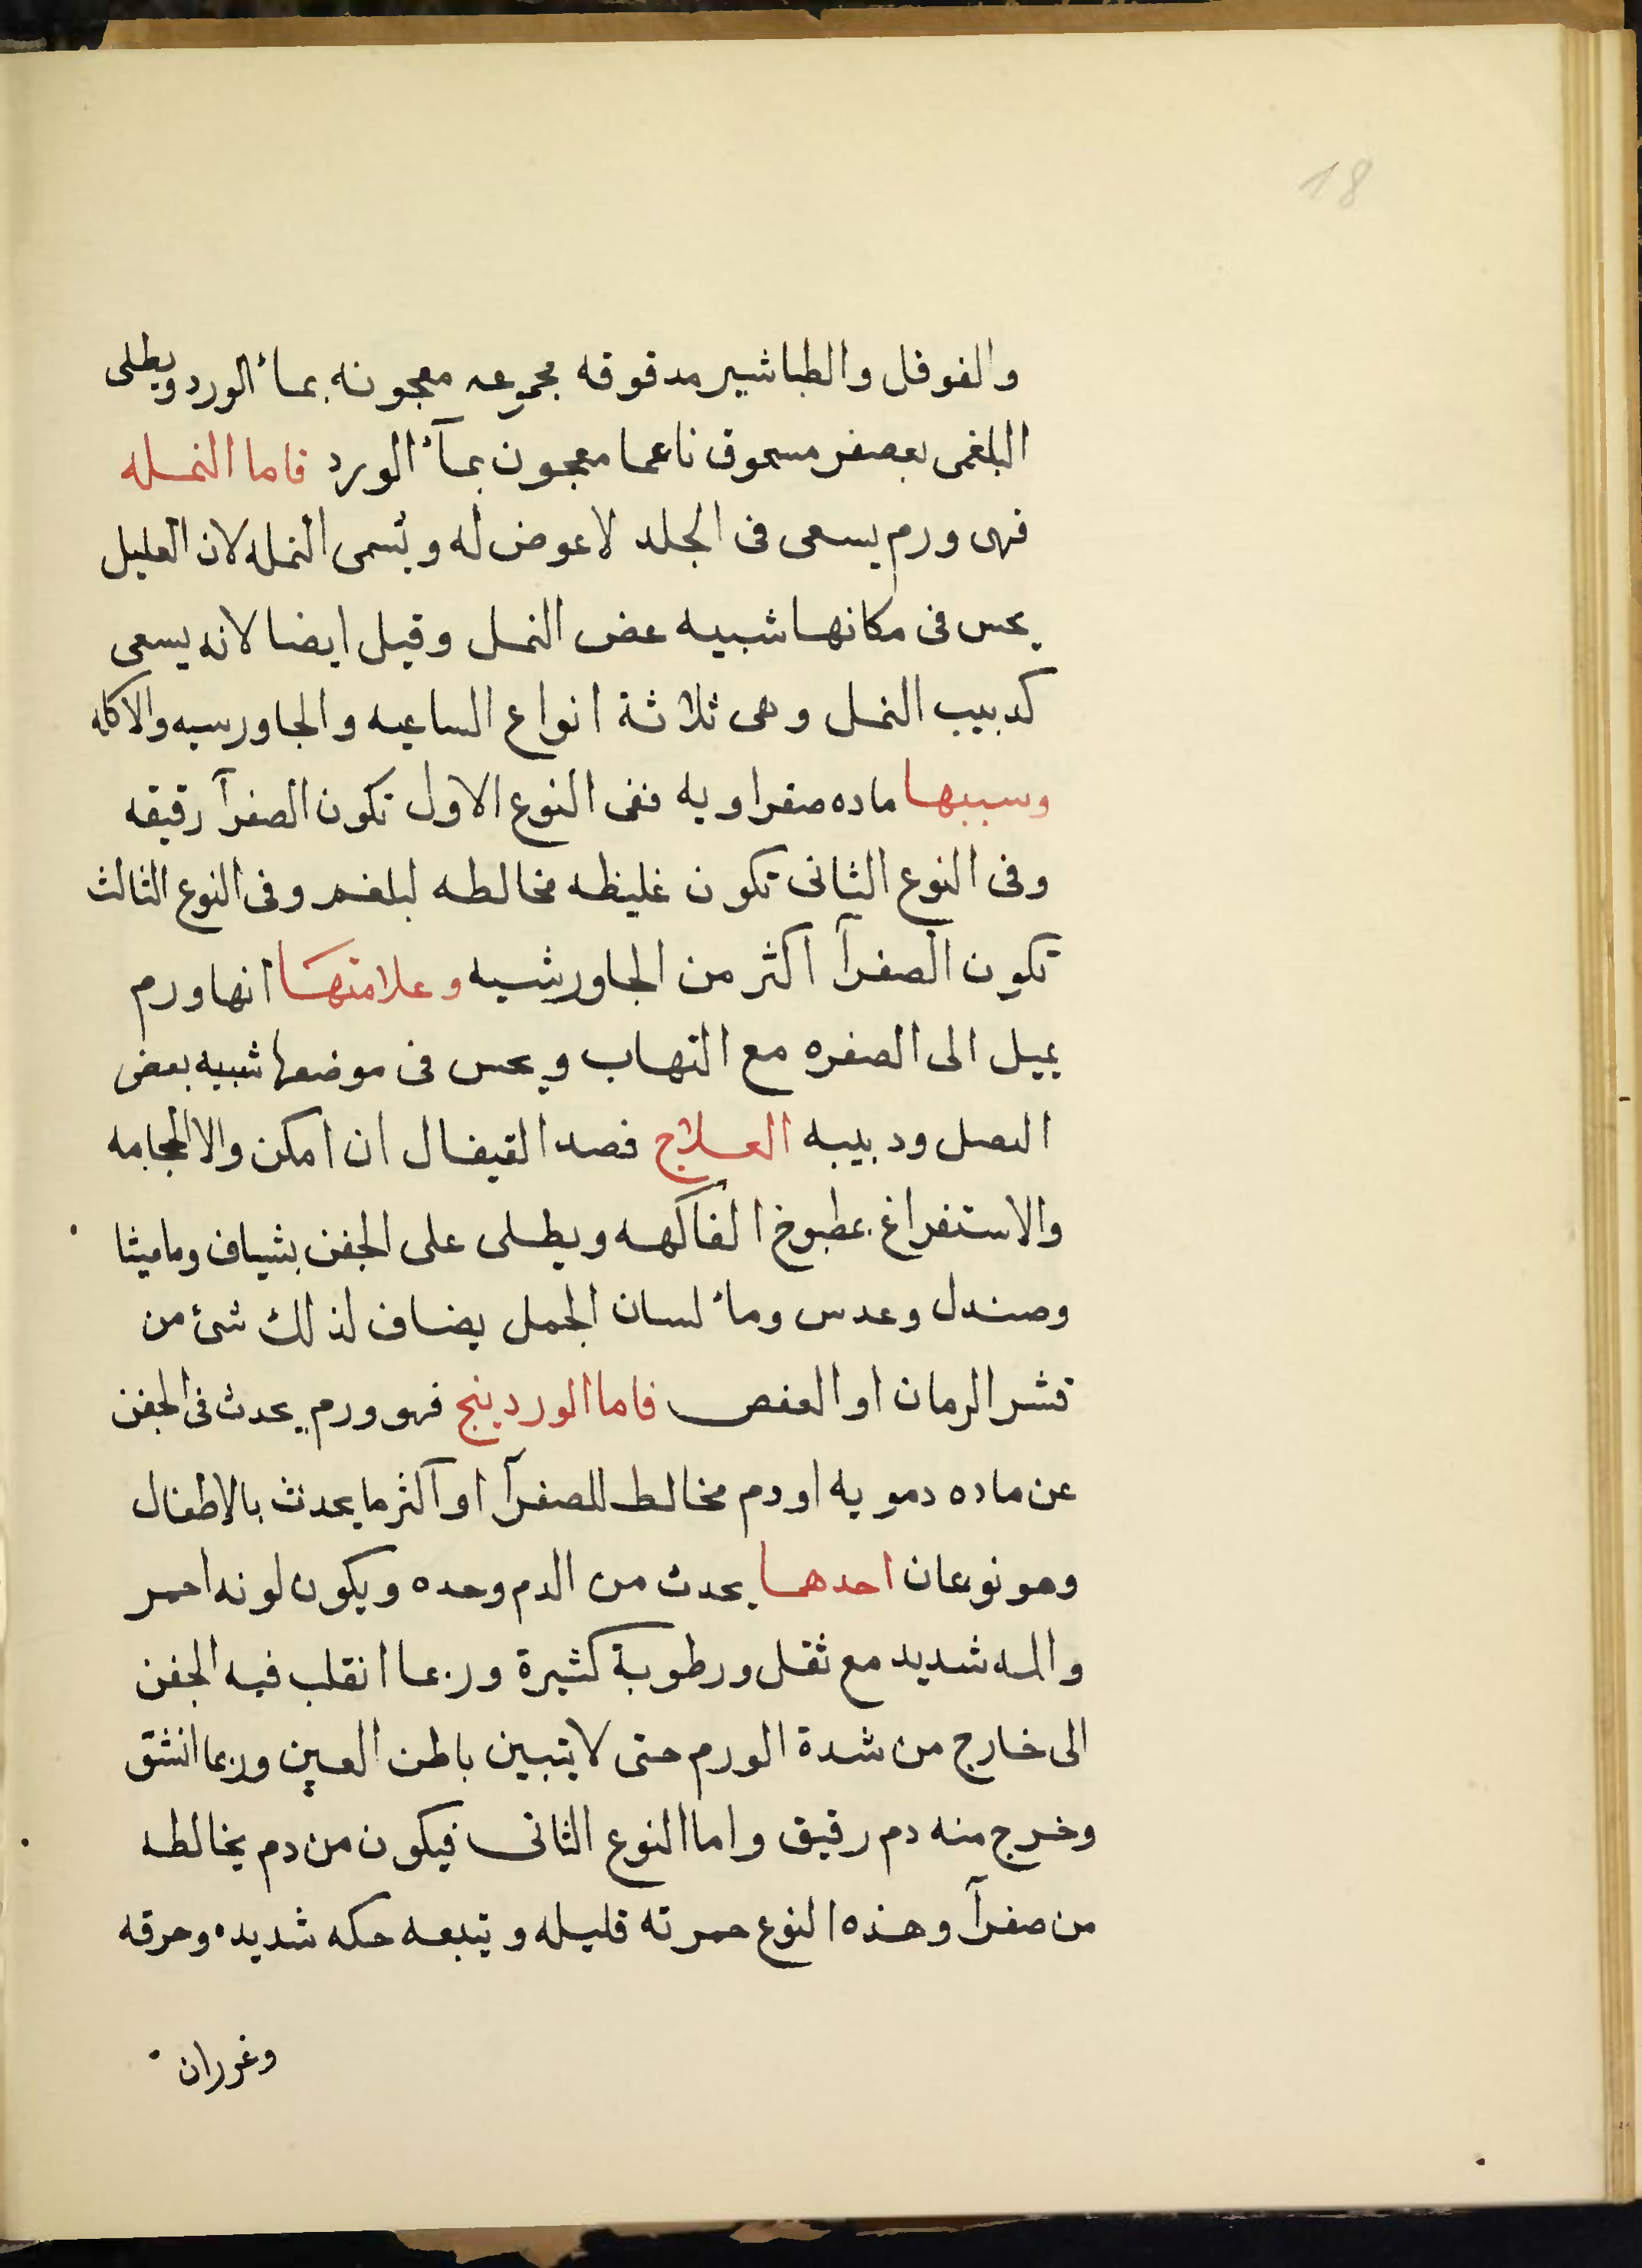 18
والفوفل والطباشير مدقوقه مجموعه معجونه بماء الورد ويطلى
البلغمى بعصفر مسحوق ناعما معجون بمآء الورد فاما النمله
فهى ورم يسعى فى الجلد لا عوض له وتسمى النمله لان العليل
يحس فى مكانها شبيه عض النمل وقيل ايضا لانه يسعى
كدبيب النمل وهى ثلاثة انواع الساعيه والجاورسيه والاكله
وسببها ماده صفراويه ففى النوع الاول تكون الصفرآ رقيقه
وفى النوع الثانى تكون غليظه مخالطه لبلغم وفى النوع الثالث
تكون الصفرآ اكثر من الجاورشيه وعلامتهَا انها ورم
يميل الى الصفره مع التهاب ويحس فى موضعها شبيه بعض
النصل ودبيبه العلاج فصد القيفال ان امكن والا الحجامه
والاستفراغ بمطبوخ الفاكهه ويطلى على الجفن بشياف وماميثا
وصندل وعدس وماء لسان الجمل يضاف لذلك شئ من
قشر الرمان او العفص فاما الوردينج فهو ورم يحدث فى الجفن
عن ماده دمويه او دم مخالط للصفرآ او اكثر ما يحدث بالاطفال
وهو نوعان احدهما يحدث من الدم وحده ويكون لونه احمر
والمه شديد مع ثقل ورطوبة كثيرة وربما انقلب فيه الجفن
الى خارج من شدة الورم حتى لا يتبين باطن العين وربما انشق
وخرج منه دم رقيق واما النوع الثانى فيكون من دم يخالطه
من صفرآ وهذه النوع حمرته قليله ويتبعه حكه شديده وحرقه
وغرران